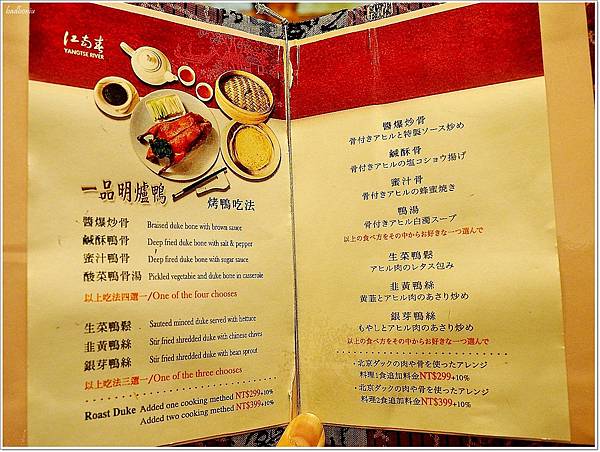 badboniu
江南春
YANGTSE RIVER
一品明爐鴨
烤鴨吃法
醬爆炒骨 Braised duke bone with brown sauce
鹹酥鴨骨 Deep fried duke bone with salt & pepper
蜜汁鴨骨 Deep fired duke bone with sugar sauce
酸菜鴨骨湯 Pickled vegetabie and duke bone in casserole
以上吃法四選一/One of the four chooses
生菜鴨鬆 Sauteed minced duke served with lettuce
韭黃鴨絲 Stir fried shredded duke with chinese chaves
銀芽鴨絲 Stir fried shredded duke with bean sprout
以上吃法三選一/One of the three chooses
Roast Duke Added one cooking methed NT$299+10%
Added two cooking methed NT$399+10%
醬爆炒骨
骨付きアヒルと特製ソース炒め
鹹酥骨
骨付きアヒルの塩コショウ揚げ
蜜汁骨
骨付きアヒルの蜂蜜焼き
鴨湯
骨付きアヒル白濁スープ
以上の食べ方をその中からお好きな一つ選んで
生菜鴨鬆
アヒル肉のレタス包み
韭黃鴨絲
黄韮とアヒル肉のあさり炒め
銀芽鴨絲
もやしとアヒル肉のあさり炒め
以上の食べ方をその中からお好きな一つ選んで
·北京ダックの肉や骨を使ったアレンジ
料理1食追加料金NT$299+10%
·北京ダックの肉や骨を使ったアレンジ
料理2食追加料金NT$399+10%